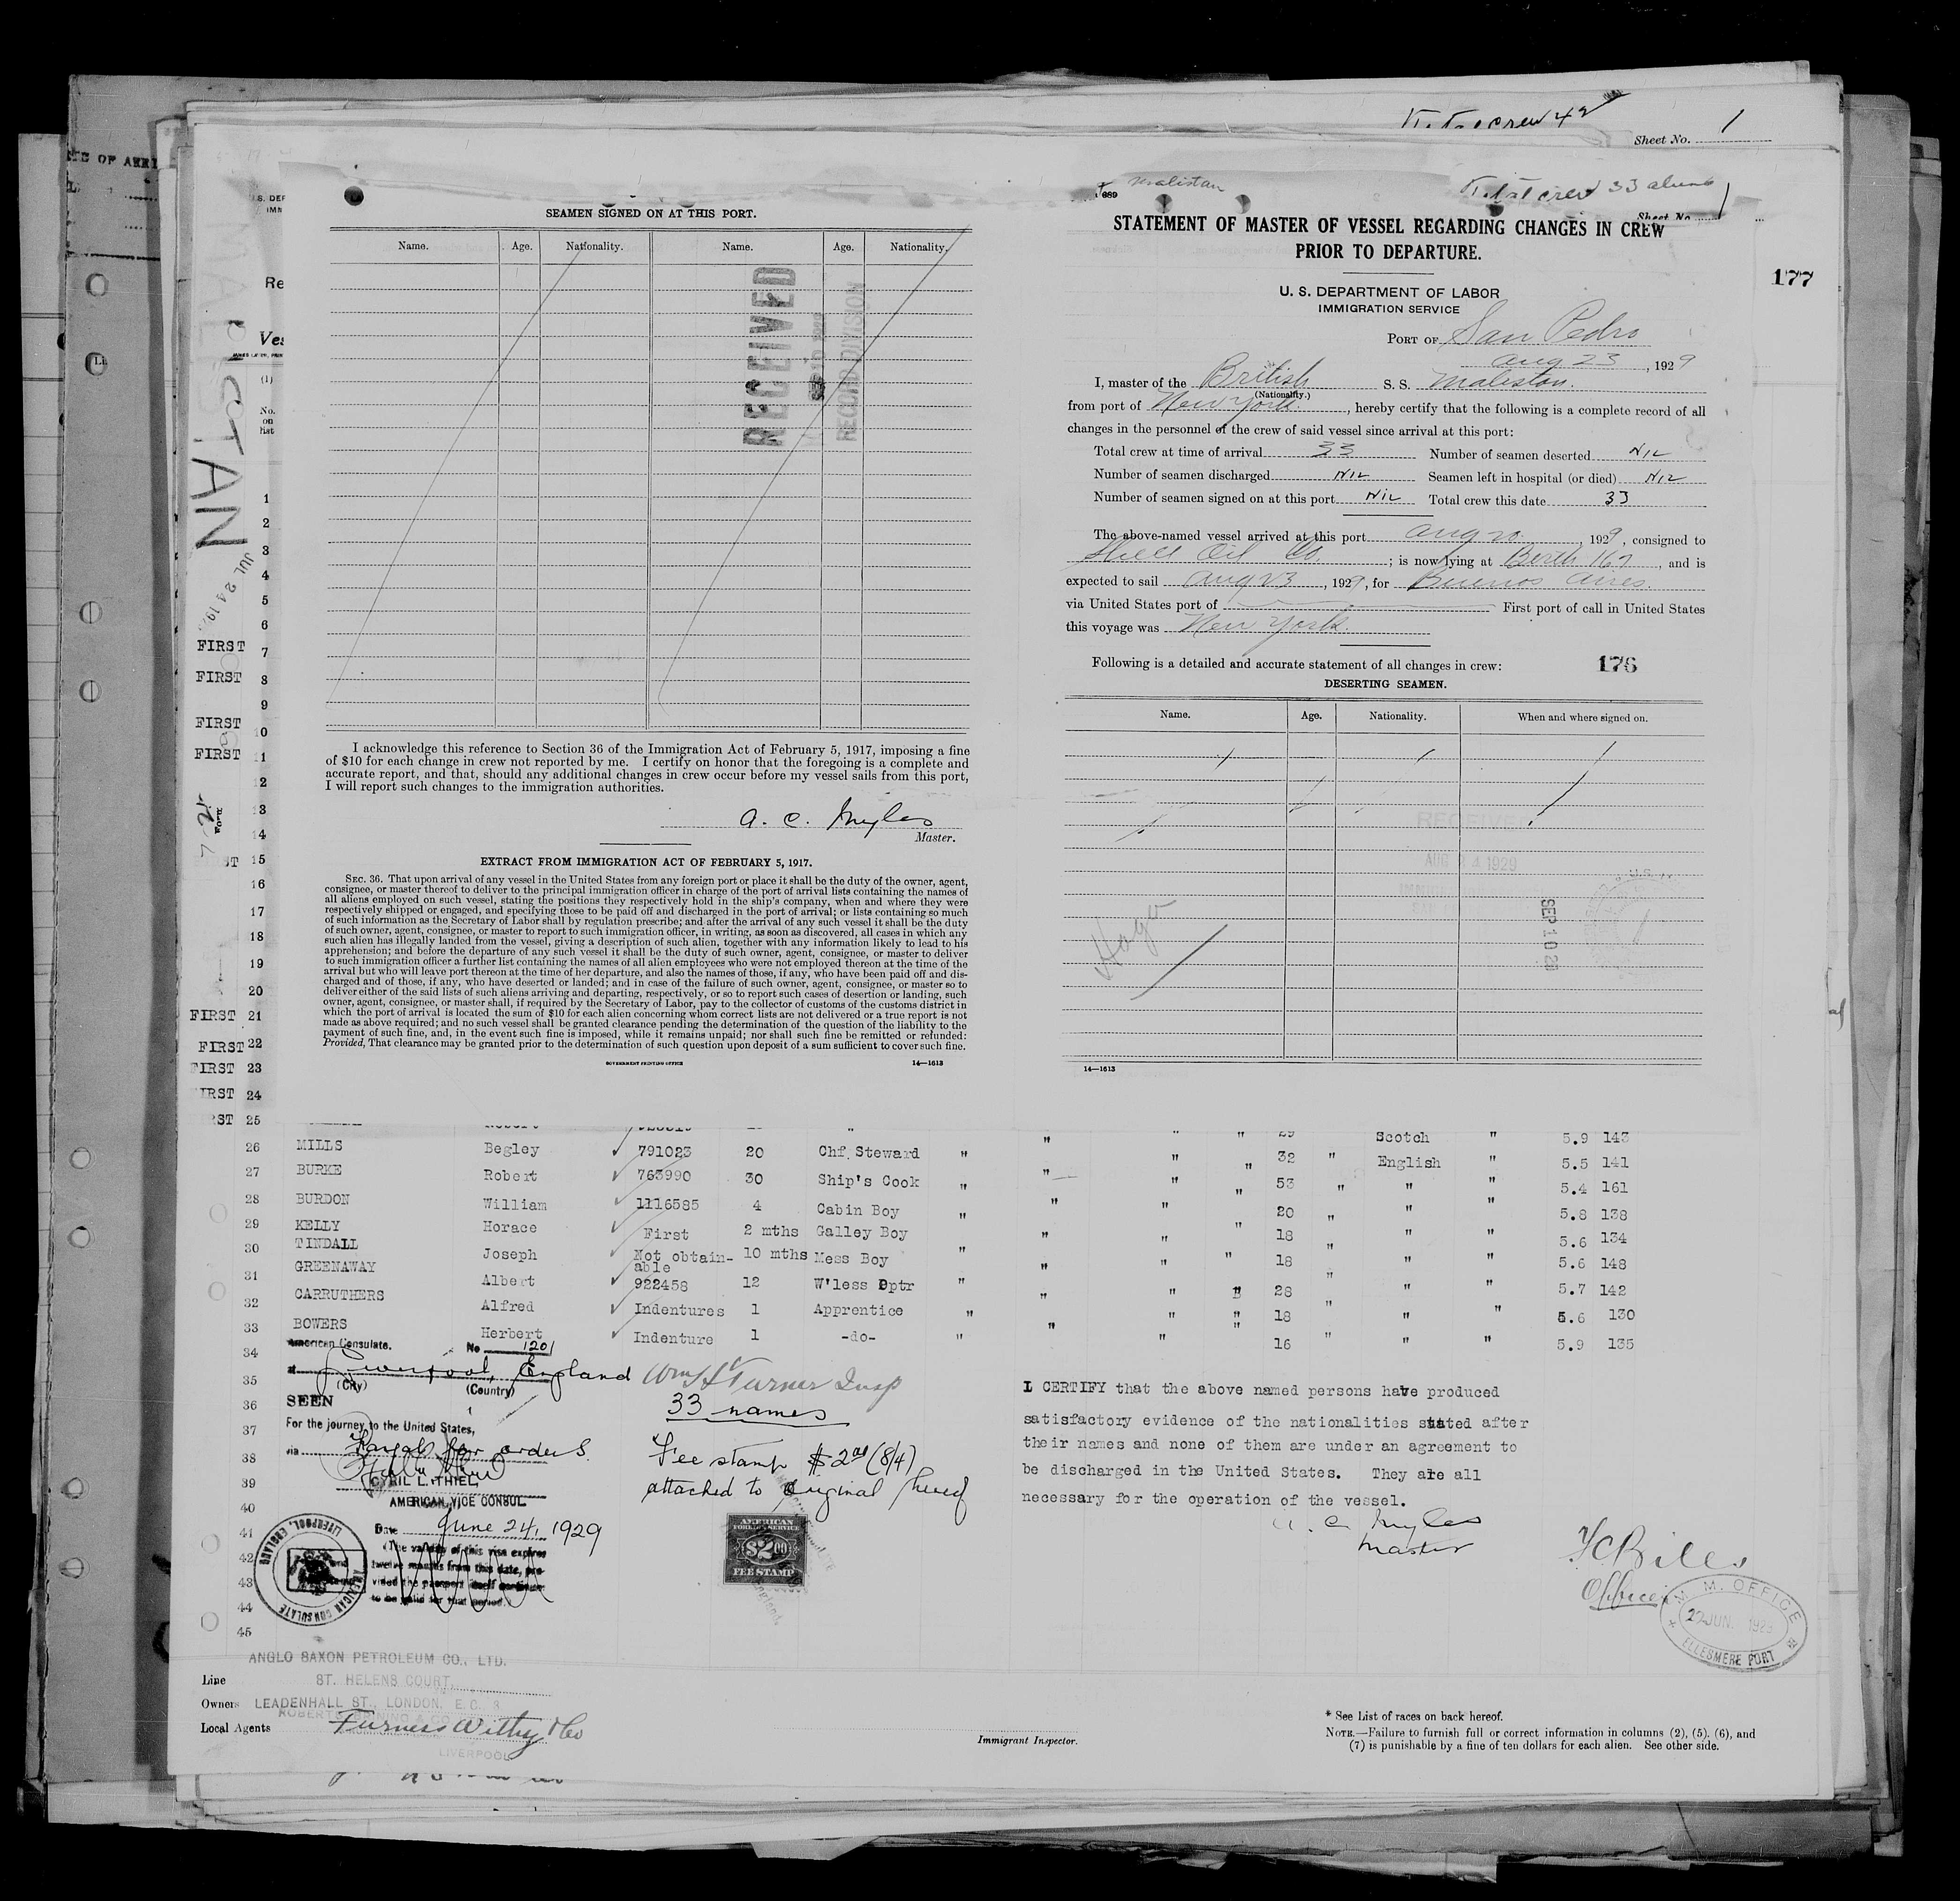 Total crew 42
Sheet No. 1
Malistan
689
Total crew 33 aliens
Sheet No. 1
177
SEAMEN SIGNED ON AT THIS PORT.
Name. Age. Nationality. Name. Age. Nationality.
RECEIVED
RECORD DIVISION
I acknowledge this reference to Section 36 of the Immigration Act of February 5, 1917, imposing a fine
of $10 for each change in crew not reported by me. I certify on honor that the foregoing is a complete and
accurate report, and that, should any additional changes in crew occur before my vessel sails from this port,
I will report such changes to the immigration authorities.
A. C. Ingles
Master.
EXTRACT FROM IMMIGRATION ACT OF FEBRUARY 5, 1917.
SEC. 36. That upon arrival of any vessel in the United States from any foreign port or place it shall be the duty of the owner, agent,
consignee, or master thereof to deliver to the principal immigration officer in charge of the port of arrival lists containing the names of
all aliens employed on such vessel, stating the positions they respectively hold in the ship's company, when and where they were
respectively shipped or engaged, and specifying those to be paid off and discharged in the port of arrival; or lists containing so much
of such information as the Secretary of Labor shall by regulation prescribe; and after the arrival of any such vessel it shall be the duty
of such owner, agent, consignee, or master to report to such immigration officer, in writing, as soon as discovered, all cases in which any
such alien has illegally landed from the vessel, giving a description of such alien, together with any information likely to lead to his
apprehension; and before the departure of any such vessel it shall be the duty of such owner, agent, consignee, or master to deliver
to such immigration officer a further list containing the names of all alien employees who were not employed thereon at the time of the
arrival but who will leave port thereon at the time of her departure, and also the names of those, if any, who have been paid off and dis-
charged and of those, if any, who have deserted or landed; and in case of the failure of such owner, agent, consignee, or master so to
deliver either of the said lists of such aliens arriving and departing, respectively, or so to report such cases of desertion or landing, such
owner, agent, consignee, or master shall, if required by the Secretary of Labor, pay to the collector of customs of the customs district in
which the port of arrival is located the sum of $10 for each alien concerning whom correct lists are not delivered or a true report is not
made as above required; and no such vessel shall be granted clearance pending the determination of the question of the liability to the
payment of such fine, and, in the event such fine is imposed, while it remains unpaid; nor shall such fine be remitted or refunded:
Provided, That clearance may be granted prior to the determination of such question upon deposit of a sum sufficient to cover such fine.
GOVERNMENT PRINTING OFFICE 14—1613
STATEMENT OF MASTER OF VESSEL REGARDING CHANGES IN CREW
PRIOR TO DEPARTURE.
U. S. DEPARTMENT OF LABOR
IMMIGRATION SERVICE
PORT OF San Pedro
Aug 23, 1929
I, master of the British S. S. Maliston.
(Nationality.)
from port of New York., hereby certify that the following is a complete record of all
changes in the personnel of the crew of said vessel since arrival at this port:
Total crew at time of arrival 33 Number of seamen deserted NIL
Number of seamen discharged NIL Seamen left in hospital (or died) NIL
Number of seamen signed on at this port NIL Total crew this date 33
The above-named vessel arrived at this port Aug 20, 1929, consigned to
Shell Oil Co.; is now lying at Berth 167, and is
expected to sail Aug 23, 1929, for Buenos Aires.
via United States port of First port of call in United States
this voyage was New York.
Following is a detailed and accurate statement of all changes in crew: 176
DESERTING SEAMEN.
Name. Age. Nationality. When and where signed on.
RECEIVED
AUG 24 1929
SEP 10 29
14—1613
FIRST 21
FIRST 22
FIRST 23
24
25
26 MILLS Begley 791023 20 Chf. Steward " " " " 29 Scotch " 5.9 143
27 BURKE Robert 763990 30 Ship's Cook " " " " 32 " English " 5.5 141
28 BURDON William 1116585 4 Cabin Boy " " " " 53 " " " 5.4 161
29 KELLY Horace First 2 mths Galley Boy " " " 20 " " " 5.8 138
30 TINDALL Joseph Not obtain-able 10 mths Mess Boy " " " " 18 " " " 5.6 134
31 GREENAWAY Albert 922458 12 W'less Optr " " " " 18 " " " 5.6 148
32 CARRUTHERS Alfred Indentures 1 Apprentice " " " " 28 " " " 5.7 142
33 BOWERS Herbert Indenture 1 -do- " " " " 18 " " " 5.6 130
16 " " " 5.9 135
American Consulate. No 1201
at Liverpool, England
(City) (Country)
SEEN
For the journey to the United States,
via
CYRIL L. THIEL,
AMERICAN VICE CONSUL.
Date June 24, 1929
The validity of this visa expires
twelve months from this date, pro-
vided the passport itself continues
to be valid for that period.
AMERICAN CONSULATE LIVERPOOL, ENGLAND
Turner Insp
33 names
Fee stamp $2.00 (8/4)
attached to original hereof
AMERICAN
FOREIGN SERVICE
$2.00
FEE STAMP
I CERTIFY that the above named persons have produced
satisfactory evidence of the nationalities stated after
their names and none of them are under an agreement to
be discharged in the United States. They are all
necessary for the operation of the vessel.
A. C. Ingles
Master
Officer
M. M. OFFICE
22 JUN. 1929
ELLESMERE PORT
ANGLO SAXON PETROLEUM CO., LTD.
Line ST. HELENS COURT,
Owners LEADENHALL ST., LONDON, E.C. 3
Local Agents Furness Withy & Co
LIVERPOOL
Immigrant Inspector.
* See List of races on back hereof.
NOTE.—Failure to furnish full or correct information in columns (2), (5), (6), and
(7) is punishable by a fine of ten dollars for each alien. See other side.